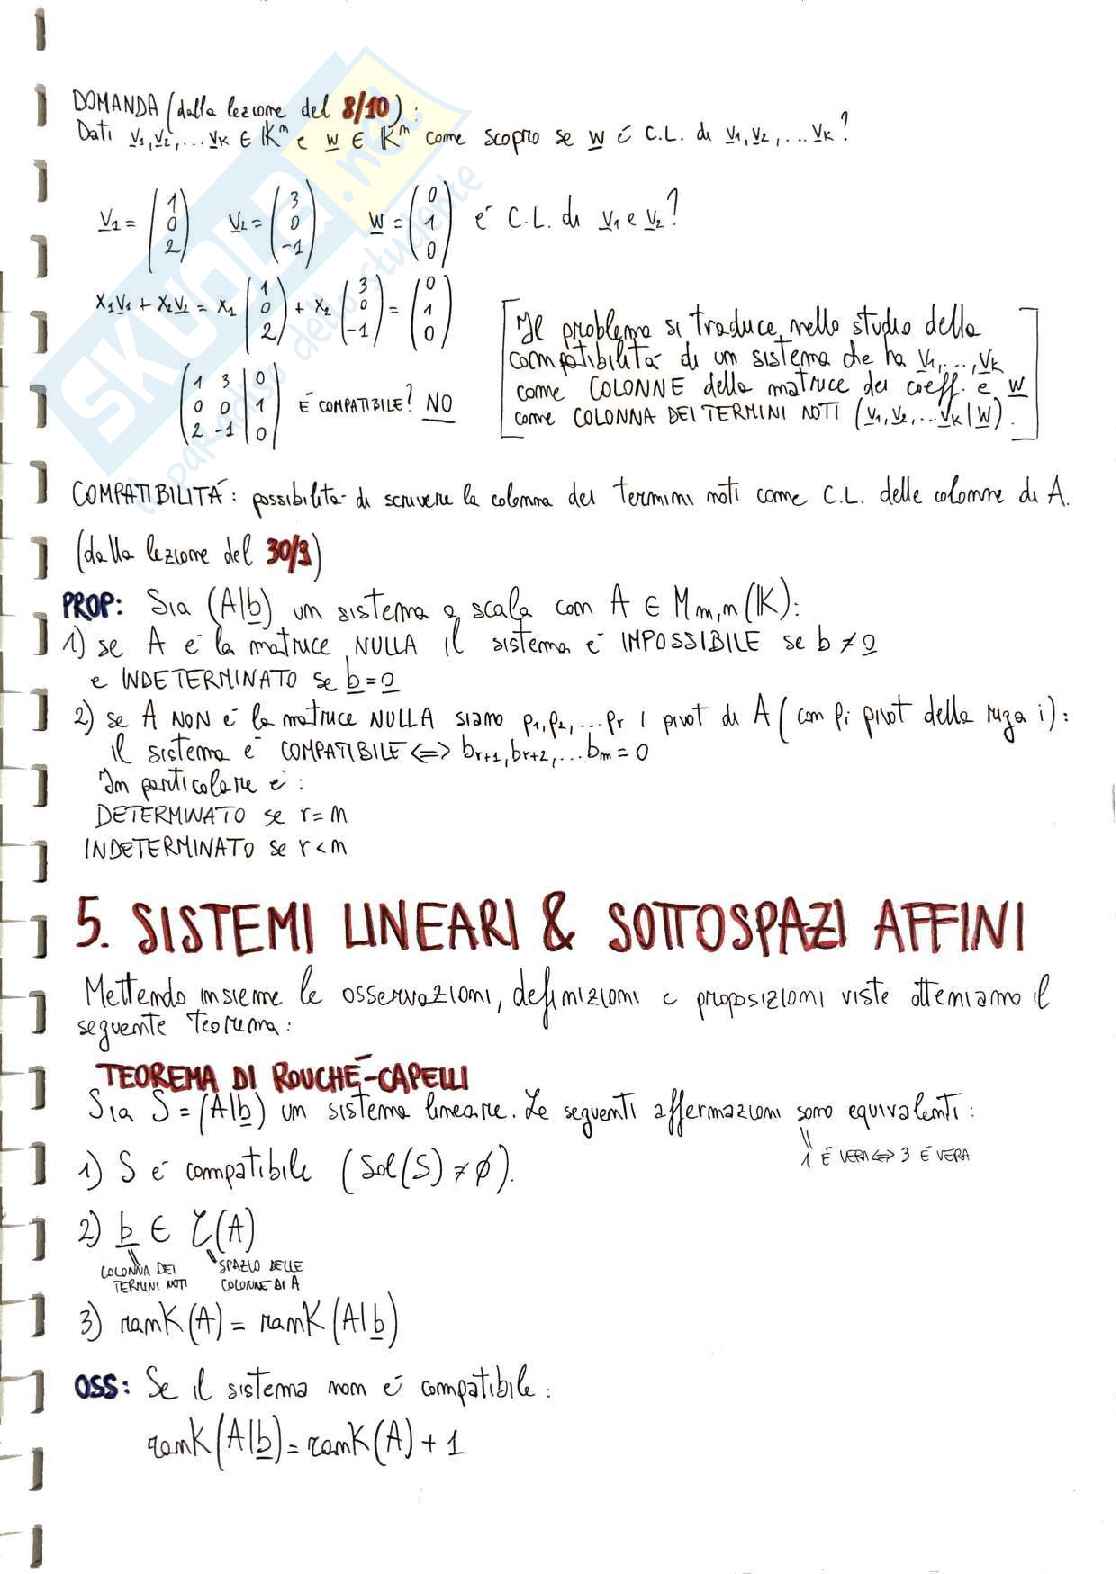 DOMANDA (dalla lezione del 8/10):
Dati v1, v2, ... vk ∈ K^m e w ∈ K^m come scopro se w è C.L. di v1, v2, ... vk?
v1 = (1 0 2) v2 = (3 0 -1) w = (0 1 0) è C.L. di v1 e v2?
x1v1 + x2v2 = x1 (1 0 2) + x2 (3 0 -1) = (0 1 0)
(1 3 | 0
0 0 | 1
2 -1 | 0) È COMPATIBILE? NO
[Il problema si traduce nello studio della
compatibilità di un sistema che ha v1, ..., vk
come COLONNE della matrice dei coeff. e w
come COLONNA DEI TERMINI NOTI (v1, v2, ... vk | w).]
COMPATIBILITÁ: possibilità di scrivere la colonna dei termini noti come C.L. delle colonne di A.
(dalla lezione del 30/9)
PROP: Sia (A|b) un sistema a scala con A ∈ Mm,n(K):
1) se A è la matrice NULLA il sistema è IMPOSSIBILE se b ≠ 0
e INDETERMINATO se b = 0
2) se A NON è la matrice NULLA siano p1, p2, ... pr i pivot di A (con pi pivot della riga i):
il sistema è COMPATIBILE <=> br+1, br+2, ... bm = 0
In particolare è:
DETERMINATO se r = n
INDETERMINATO se r < n
5. SISTEMI LINEARI & SOTTOSPAZI AFFINI
Mettendo insieme le osservazioni, definizioni e proposizioni viste otteniamo il
seguente teorema:
TEOREMA DI ROUCHÉ-CAPELLI
Sia S = (A|b) un sistema lineare. Le seguenti affermazioni sono equivalenti:
1 È VERA <=> 3 È VERA
1) S è compatibile (Sol(S) ≠ ∅).
2) b ∈ C(A)
COLONNA DEI TERMINI NOTI
SPAZIO DELLE COLONNE DI A
3) rank(A) = rank(A|b)
OSS: Se il sistema non è compatibile:
rank(A|b) = rank(A) + 1
SKUOLA.net
il paradiso dello studente